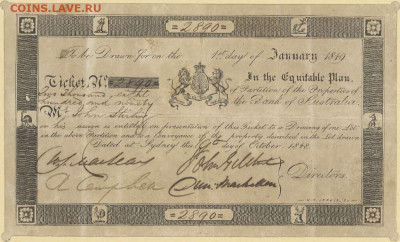 COINS.LAVE.RU
=2890=
To be Drawn for on the 1st day of January 1849
Ticket. No. =2890= In the Equitable Plan,
Two Thousand eight of Partition of the Properties of
hundred and ninety the Bank of Australia.
Mr. John
or his assign is entitled on presentation of this Ticket to a Drawing of one Lot
in the above Partition and to a Conveyance of the property described in the Lot drawn.
Dated at Sydney this day of October 1848
Directors
=2890=